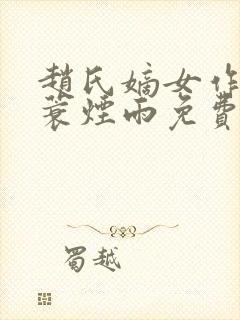 趙氏嫡女作
蓑煙雨免費
蜀越